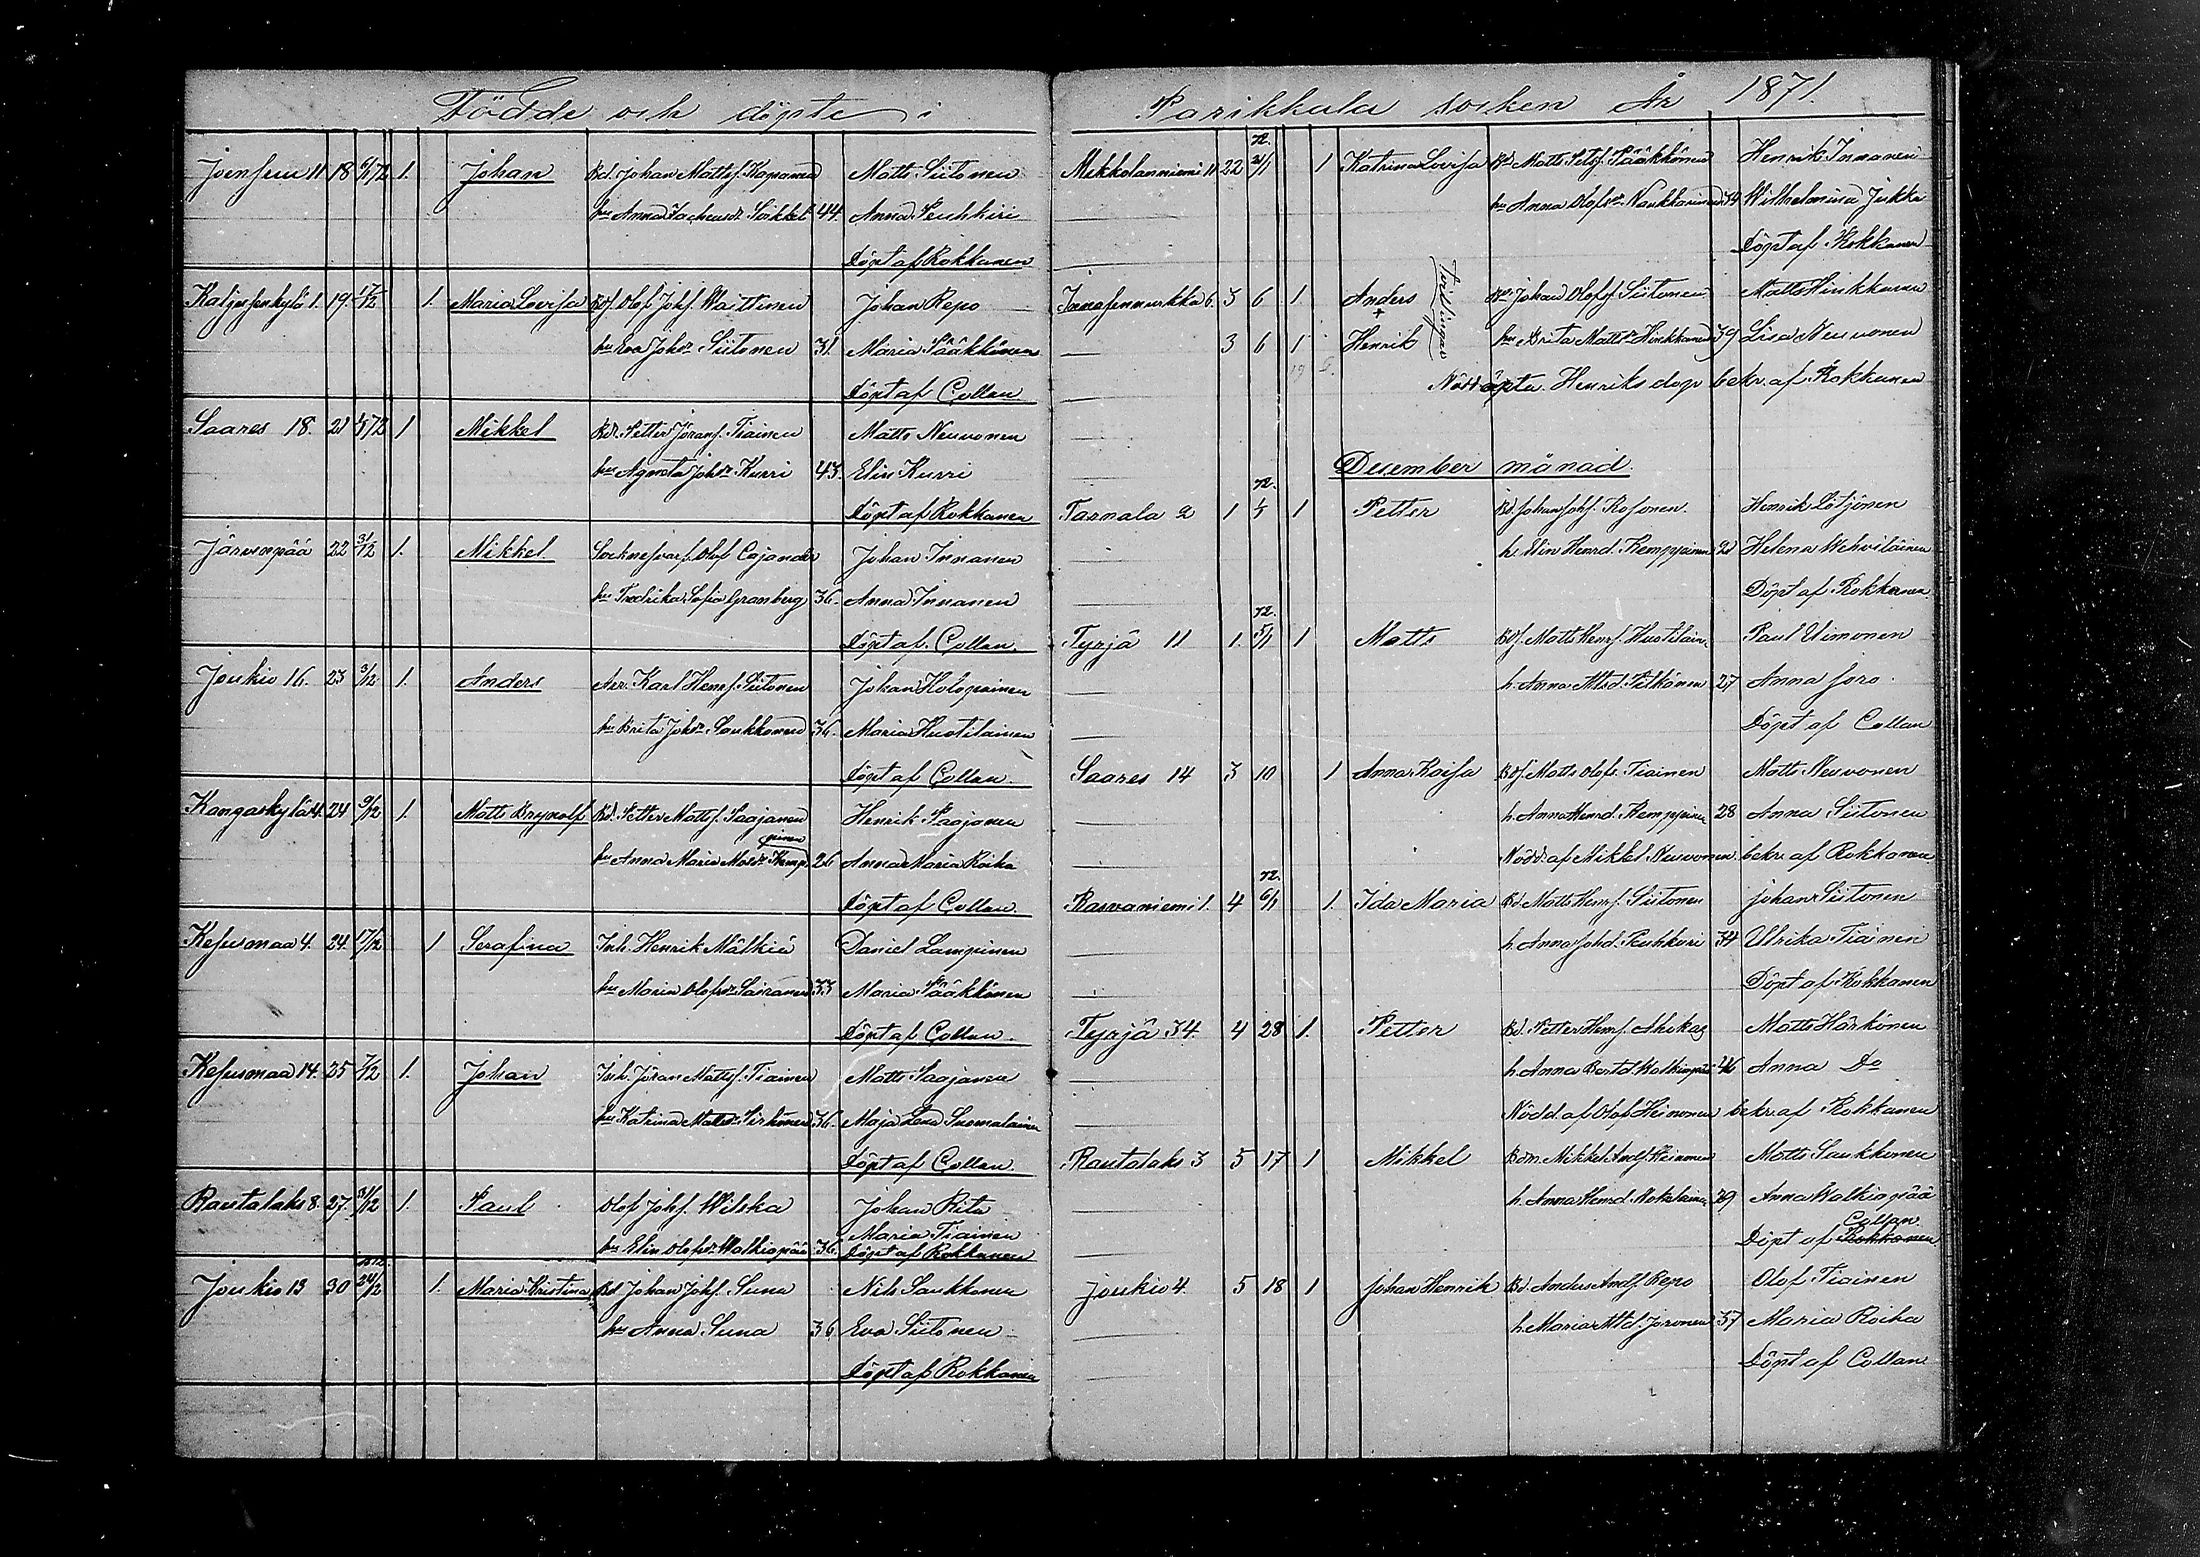 Födde och döpte i
Joensuu 11 18 6/1 72 1. Johan Bd. Johan Mattsf. Kaparen Matts Siitonen
hu Anna 44 Anna Peuhkuri
Döpt af Rokkanen
1. 19. 17/12 1. Maria Lovisa Bdf. Olof Johf. Waittinen Johan Repo
hu Eva Johdr Siitonen 31. Maria Pääkkönen
Döpt af Collan
Saares 18. 21 1/1 72 1 Mikkel Bdr. Petter Göransf. Tiainen Matts Neuvonen
hu Agneta Johdr Kurri 43. Elin Kurri
Döpt af Rokkanen
Järvenpää 22 31/12 1. Mikkel Olof Cajander Johan Innanen
hu Fredrika Sofia Granberg 36. Anna Innanen
Döpt af Collan.
Joukio 16. 23 3/12 1. Anders Arr. Karl Henrf. Siitonen Johan Holopainen
hu Brita Johdr Saukkonen 36. Maria Huotilainen
Döpt af Collan.
Kangaskylä 4. 24 9/12 1. Matts Brynolf Bd. Petter Mattsf. Paajanen Henrik Paajanen
pinen
hu Anna Maria Matsdr Kemp- 26 Anna Maria Roiha
Döpt af Collan.
Kesusmaa 4. 24. 17/12 1 Serafina Inh. Henrik Mälkiä Daniel Lampinen
hu Maria Olofsdr Sairanen 33 Maria Pääkkönen
Döpt af Collan.
Kesusmaa 14. 25 7/12 1. Johan Inh. Göran Mattsf. Tiainen Matts Paajanen
hu Katrina Mattsdr Sirkonen 36. Maja Lena Suomalainen
Döpt af Collan.
Rautalaks 8. 27. 31/12 1. Paul Olof Johf. Wilska Johan Rita
Maria Tiainen
hu Elin Olofsdr Walkiapää 36. Döpt af Rokkanen
Joukio 13 30 24/2 1. Maria Kristina Bd Johan Johf. Suna Nils Saukkonen
hu Anna Suna 36 Eva Siitonen
Döpt af Rokkanen
Parikkala socken År 1871.
72.
Mikkolanniemi 11 22 2/1 1 Katrina Lovisa Bd. Matts Petsf. Pääkkönen Henrik Innanen
hu Anna Olofsdr Naukkarinen 34 Wilhelmina Jukka
Döpt af Rokkanen
6. 3 6 1 Anders Tvillingar Bd. Johan Olofsf. Siitonen Matts Hinkkanen
3 6 1 Henrik hu Brita Mattsdr Hinkkanen 39 Lisa Neuvonen
Nöddöpta. Henriks dop bekr. af Rokkanen
December månad.
72.
Tarnala 2 1 1/1 1 Petter Bd. Johan Johf. Kosonen. Henrik Lötjönen
h. Elin Henrd. Kemppinen 21 Helena Wehviläinen
Döpt af Rokkanen.
72.
Tyrjä 11 1. 5/1 1 Matts Bdf. Matts Henrf. Huotilain. Paul Uimonen
h. Anna Mtsd. Pitkänen 27 Anna Joro.
Döpt af Collan
Saares 14 3 10 1 Anna Kaisa Bdf. Matts Olofs. Tiainen Matts Neuvonen
h. Anna Henrd. Kemppinen 28 Anna Siitonen
Nödd. af Mikkel Neuvonen. bekr. af Rokkanen.
72.
Rasvaniemi 1. 4 6/1 1. Ida Maria Bd. Matts Henrf. Siitonen Johan Siitonen
h. Anna Johd. Peuhkuri 34 Ulrika Tiainen
Döpt af Rokkanen
Tyrjä 34. 4 28 1. Petter Bd. Petter Henrf. Ahokas Matts Härkönen
h. Anna Bertd. Walkiapää 46 Anna Do
Nödd. af Olof Heinonen bekr. af Rokkanen
Rautalaks 3 5 17 1 Mikkel Bdm. Mikkel Andf. Heinonen Matts Saukkonen
h. Anna Henrd. 39 Anna Walkiapää
Collan.
Döpt af Rokkanen.
Joukio 4. 5 18 1 Johan Henrik Bd. Anders Andf. Repo Olof Tiainen
h. Maria Mtd. Joronen 37 Maria Roiha
Döpt af Collan